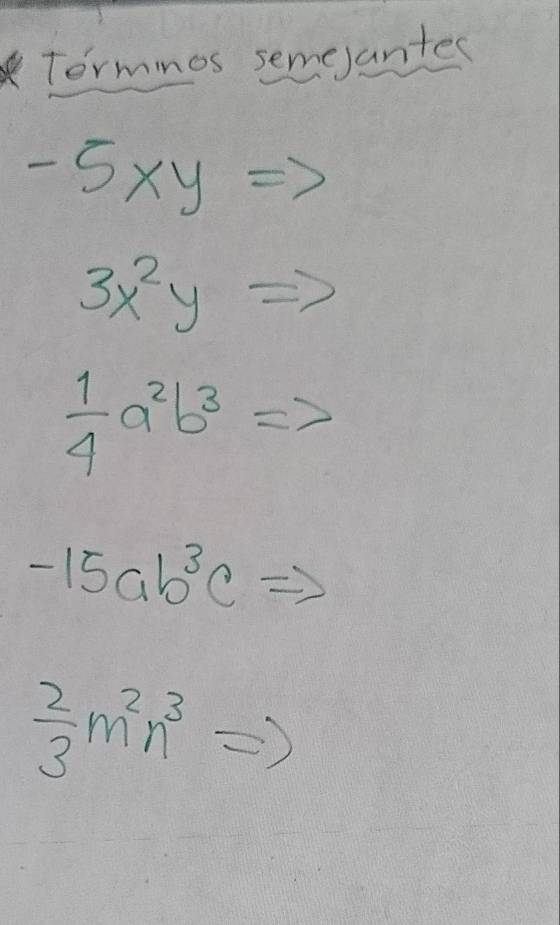 * Términos semejantes
-5xy =>
3x²y =>
1/4 a²b³ =>
-15ab³c =>
2/3 m²n³ =>